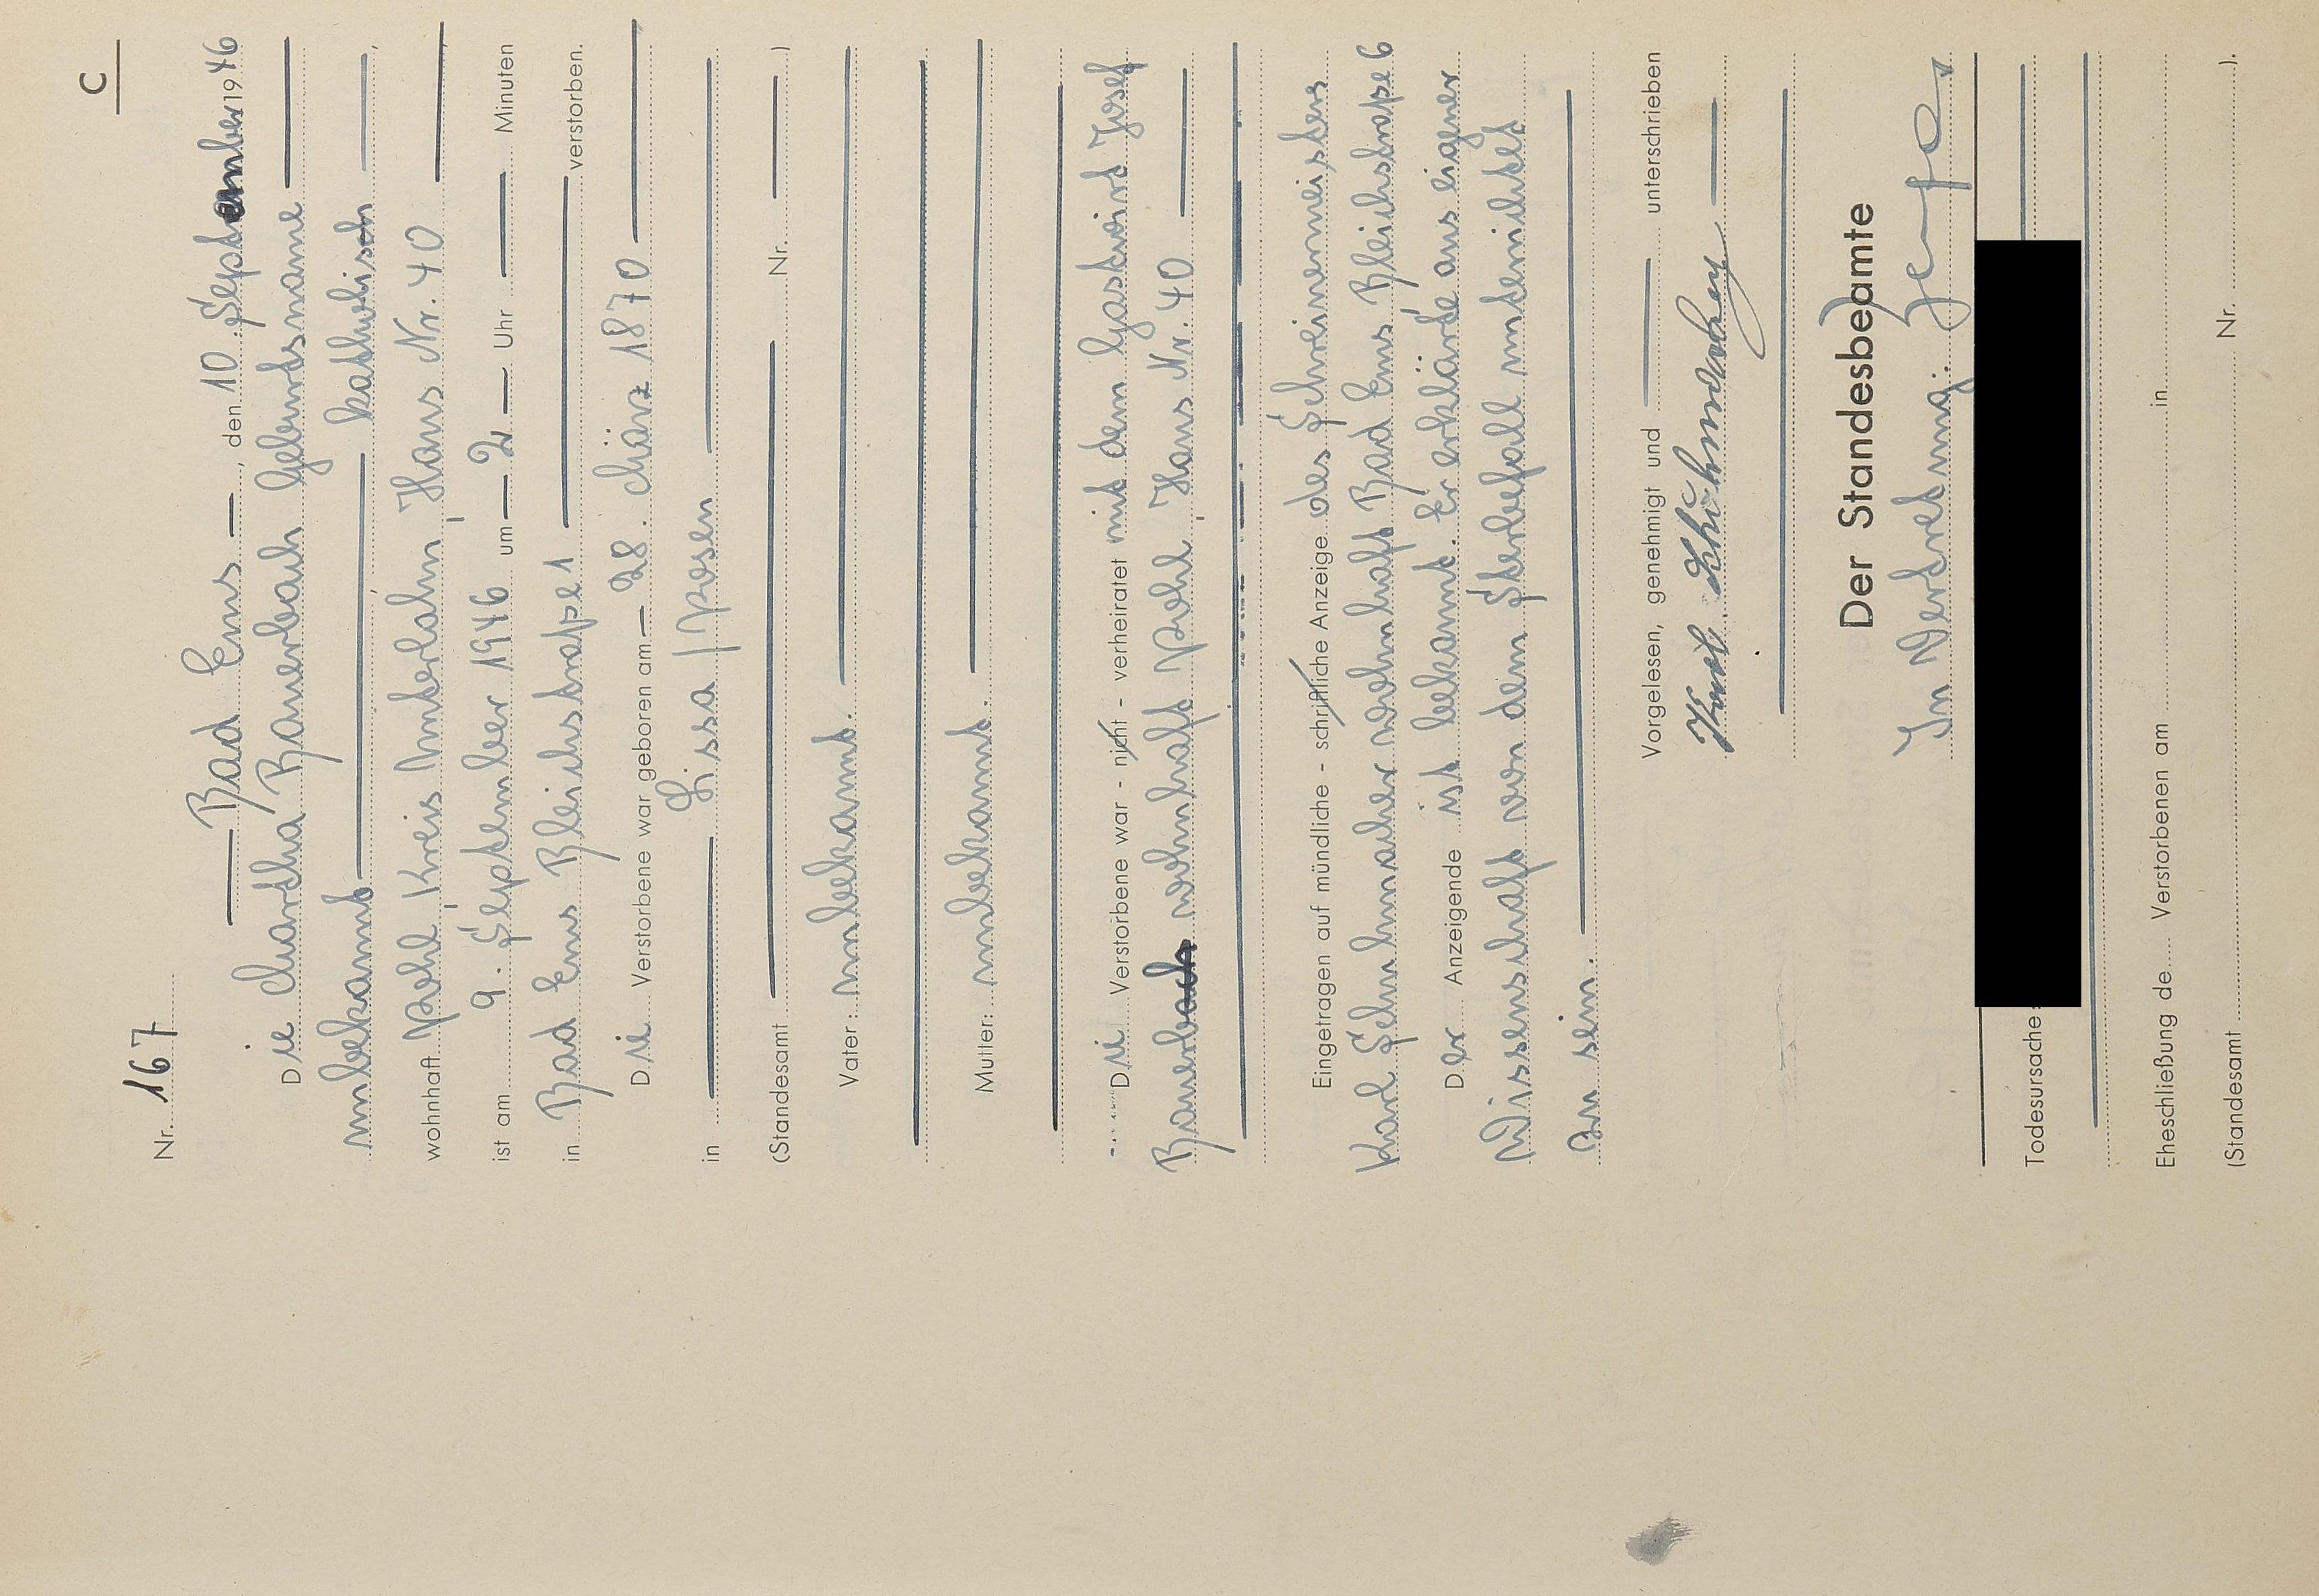 C
Nr. 167
Bad Ems, den 10. September 1946
Die Martha Bauerbach Geburtsname
unbekannt katholisch,
wohnhaft Pohl, Kreis Unterlahn, Haus Nr. 40,
ist am 9. September 1946 um 2 Uhr Minuten
in Bad Ems Bleichstraße 1 verstorben.
Die Verstorbene war geboren am 28. März 1870
in Lissa / Posen
(Standesamt Nr. )
Vater: unbekannt.
Mutter: unbekannt.
Die Verstorbene war - nicht - verheiratet mit dem Gastwirt Josef
Bauerbach wohnhaft Pohl, Haus Nr. 40
Eingetragen auf mündliche - schriftliche Anzeige des Schreinermeisters
Karl Schuhmacher wohnhaft Bad Ems, Bleichstraße 6
Der Anzeigende ist bekannt. Er erklärte, aus eigener
Wissenschaft von dem Sterbefall unterrichtet
zu sein.
Vorgelesen, genehmigt und unterschrieben
Karl Schuhmacher
Der Standesbeamte
In Vertretung:
Todesursache:
Eheschließung de Verstorbenen am in
(Standesamt Nr. ).